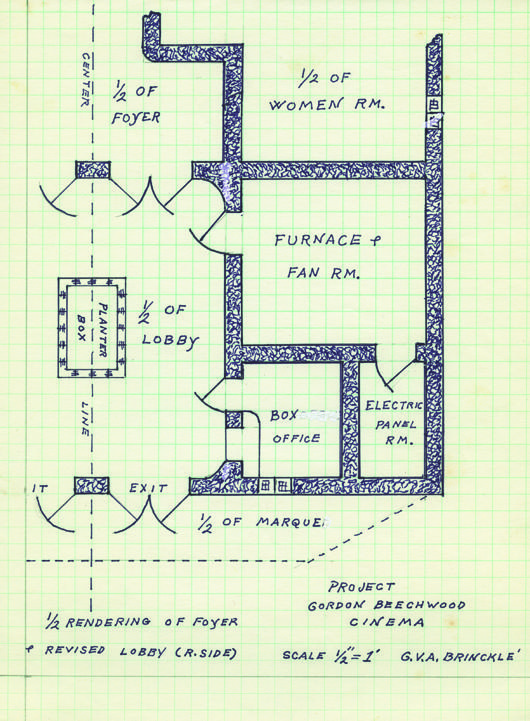 CENTER
½ OF
FOYER
½ OF
WOMEN RM.
FURNACE &
FAN RM.
PLANTER
BOX
½ OF
LOBBY
LINE
BOX
OFFICE
ELECTRIC
PANEL
RM.
IT
EXIT
½ OF MARQUE
PROJECT
GORDON BEECHWOOD
CINEMA
½ RENDERING OF FOYER
& REVISED LOBBY (R.SIDE)
SCALE ½"=1' G.V.A. BRINCKLE'